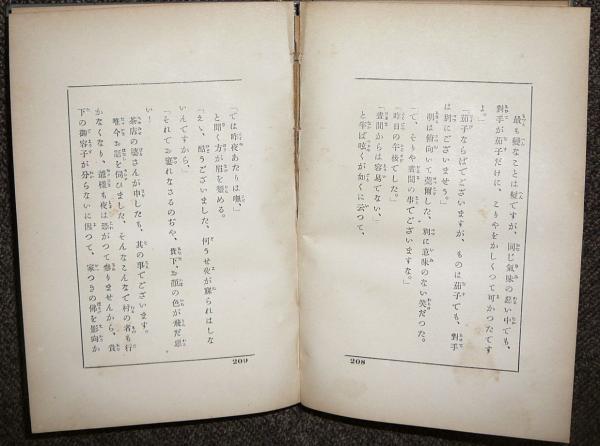 最も變なことは變ですが、同じ氣味の惡い中でも、
對手が茄子だけに、こりやをかしくつて可かつたです
よ。」
「茄子ならばでございますが、ものは茄子でも、對手
は別にございませう。」
明は俯向いて莞爾した、別に意味のない笑だつた。
「で、そりや晝間の事でございますな。」
「昨日の午後でした。」
「晝間からは容易でない。」
と半ば呟くが如くに云つて、
208
「では昨夜あたりは嘸、」
と聞く方が眉を顰める。
「えゝ、酷うございました、何うせ夜が寢られはしな
いんですから、」
「それでお窶れなさるのぢや、貴下、お顏の色が飛だ惡
い！
茶店の婆さんが申したも、其の事でございます。
唯今お話を伺ひました、そんなこんなで村の者も行
かなくなり、誰樣も夜は恐がつて參りませんから、貴
下の御容子が分らないに因つて、家つきの佛を影向か
209